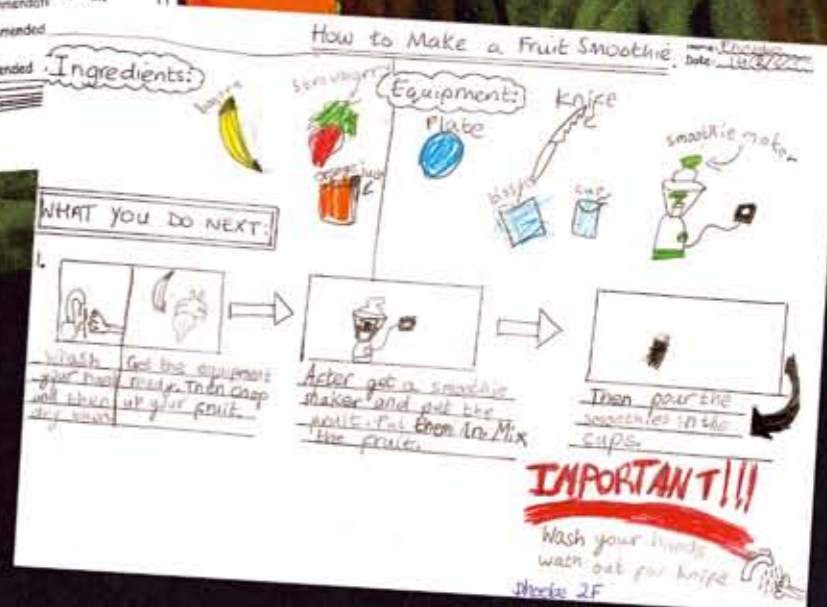 mended
ended
How to Make a Fruit Smoothie.
Name: Phoebe
Date:
Ingredients:
banana
Equipment:
Plate
Knife
smoothie maker
cup
orange juice
WHAT YOU DO NEXT:
1.
Whash
your hand
and then
dry
Get the equipment
ready. Then chop
up your fruit.
After get a smoothie
shaker and put the
fruit. Put them in. Mix
the fruit.
Then pour the
smoothies in the
cups.
IMPORTANT!!!
Wash your hands
wath out for knife
Phoebe 2F